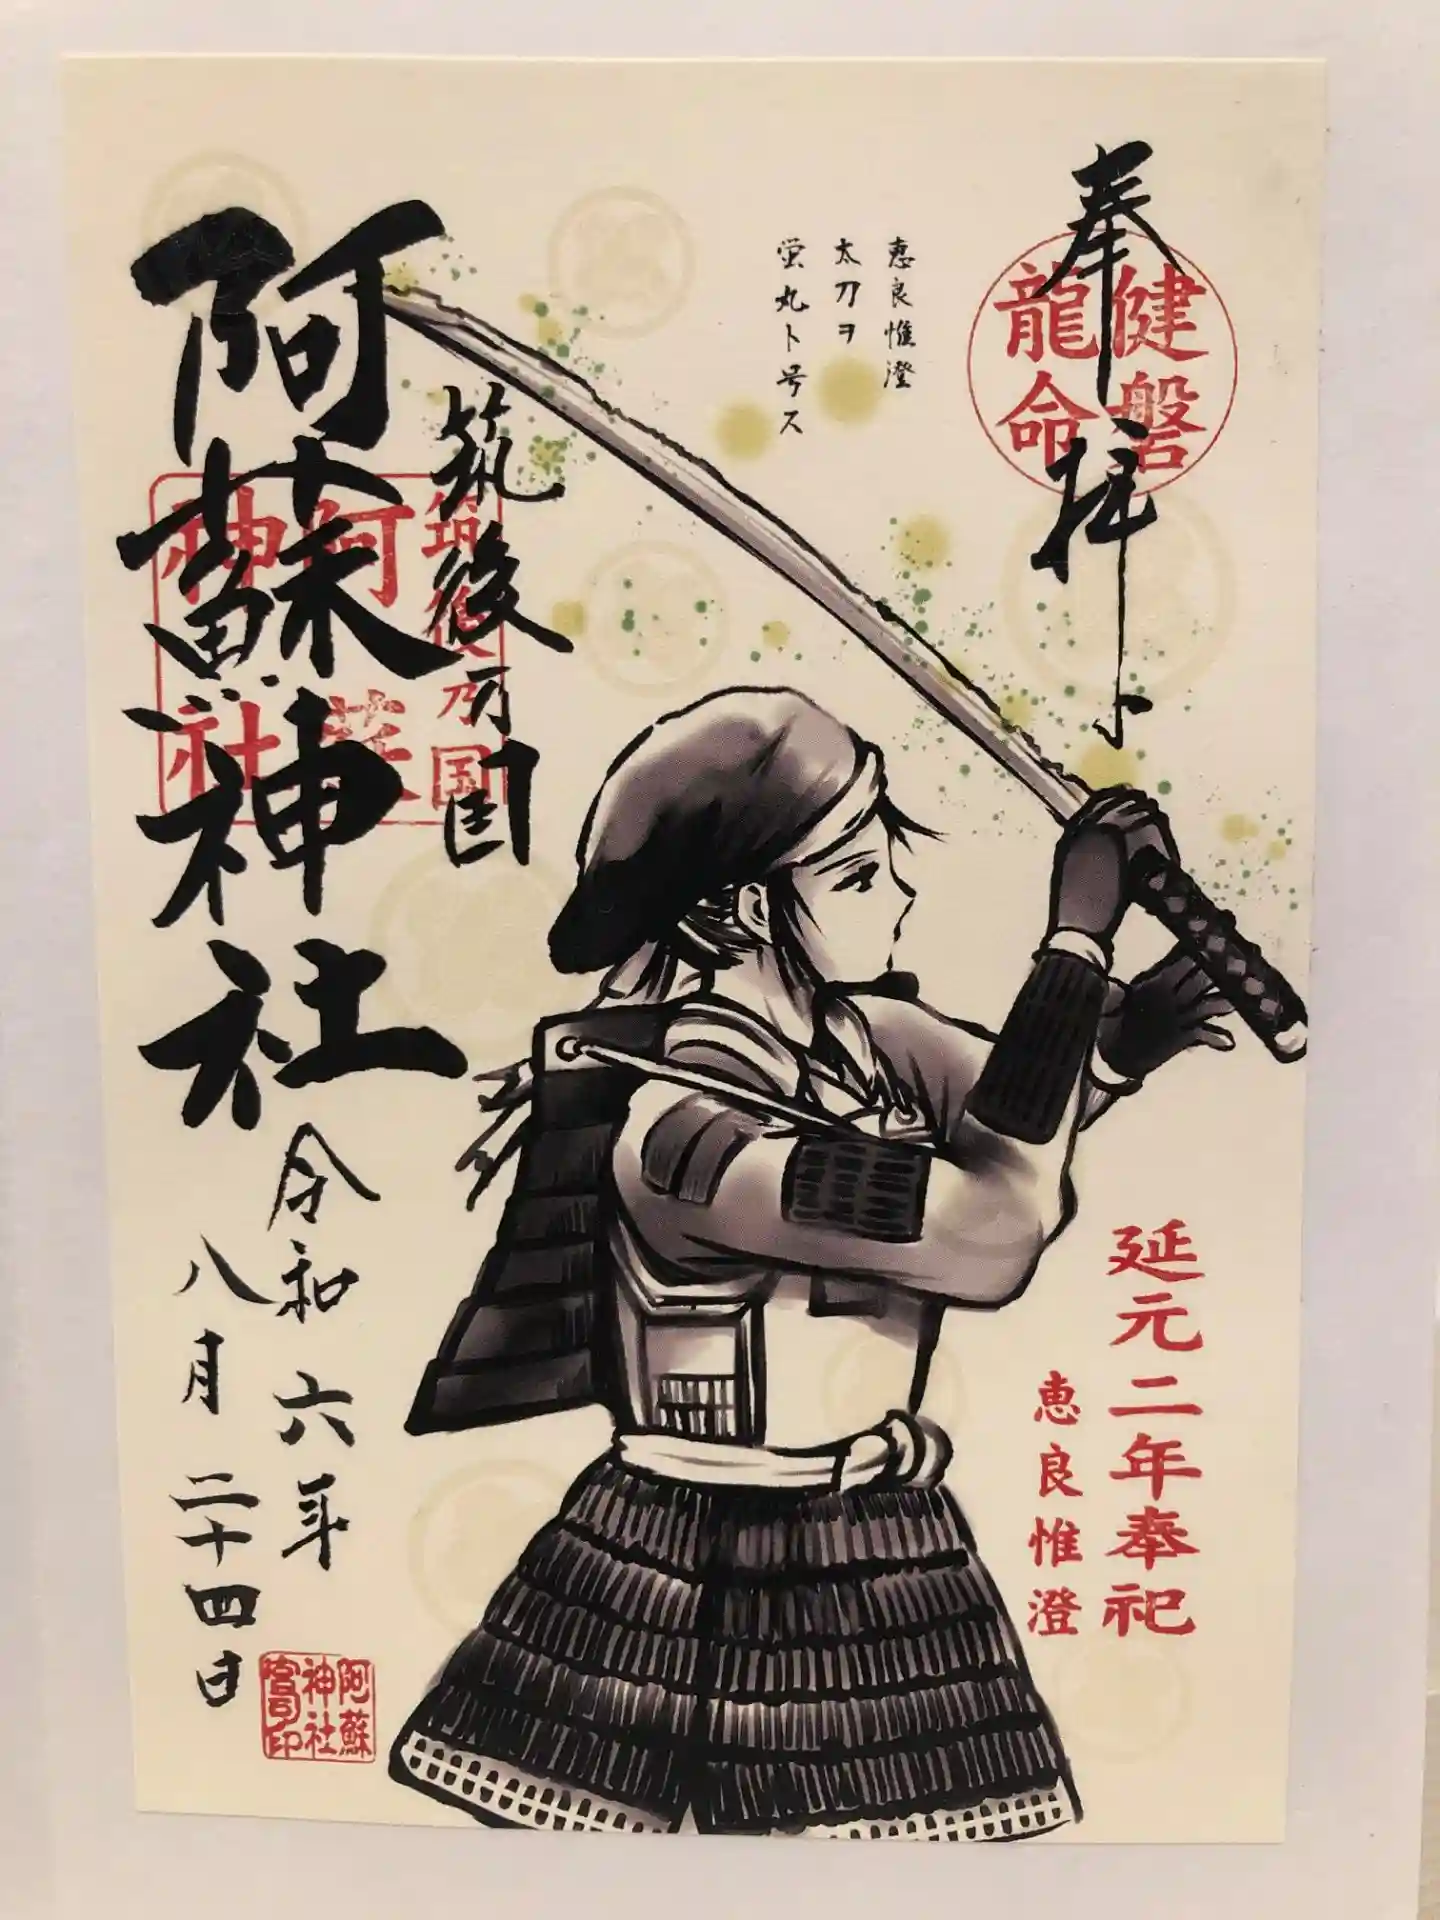 奉拝
健磐
龍命
恵良惟澄
太刀ヲ
蛍丸ト号ス
延元二年奉祀
恵良惟澄
筑後乃国
阿蘇神社
筑後乃国
阿蘇
神社
令和六年
八月二十四日
阿蘇
神社